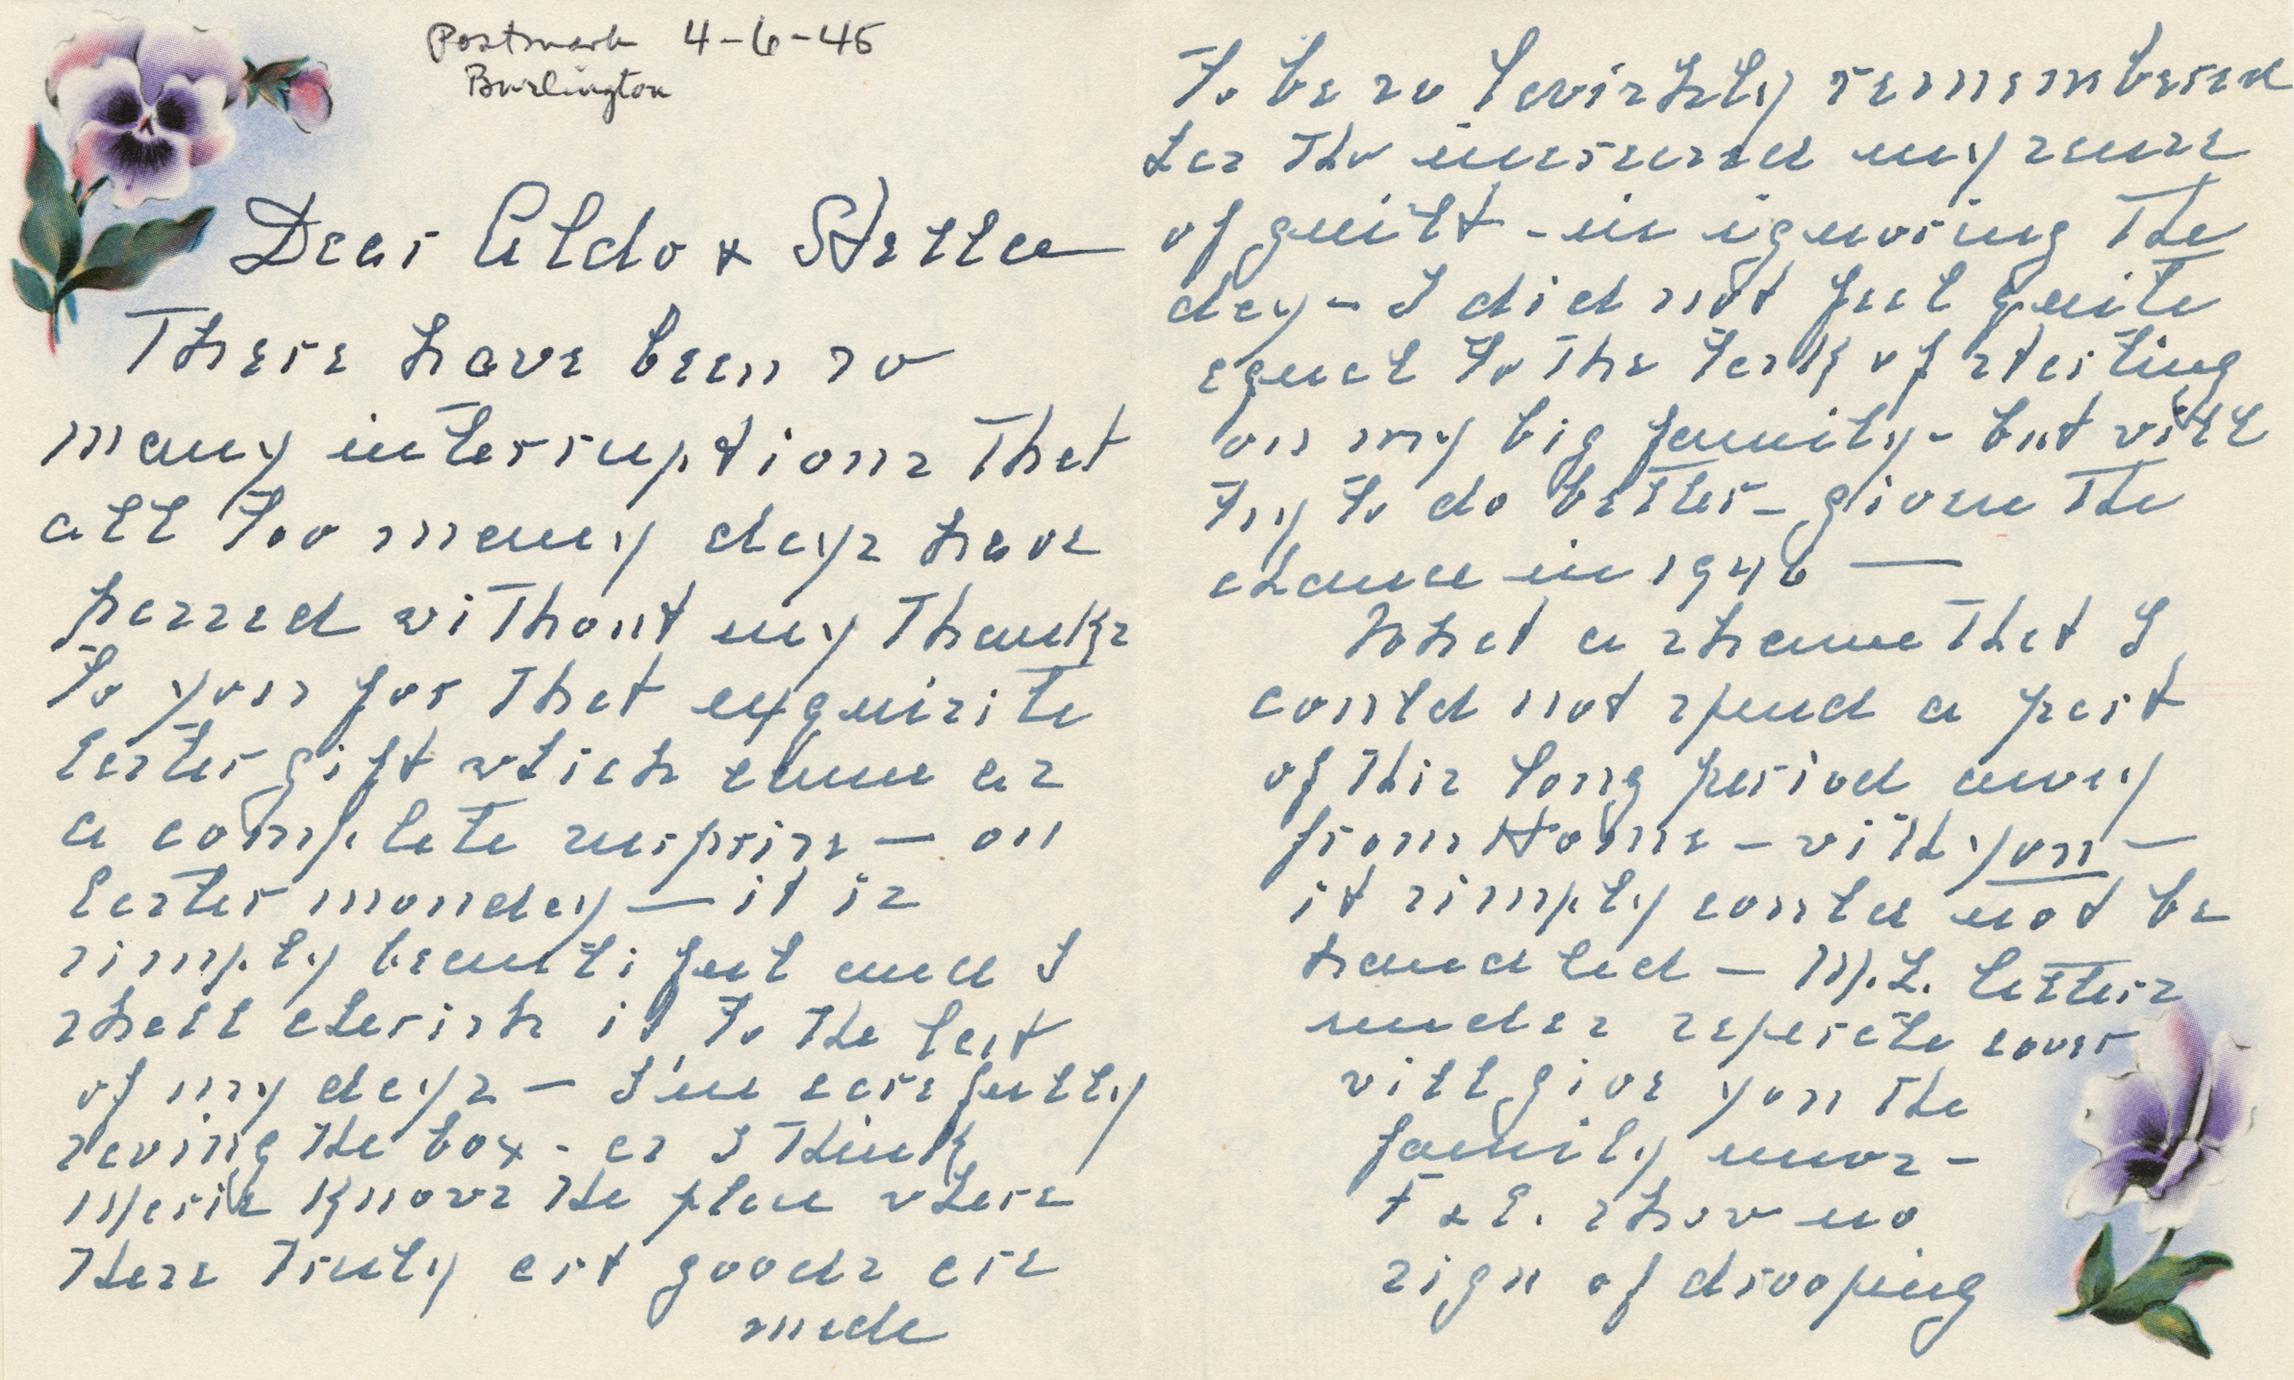 Postmark 4-6-45
Burlington
Dear Aldo & Stella
There have been so
many interruptions that
all too many days have
passed without my thanks
to you for that exquisite
Easter gift which came as
a complete surprise — on
Easter monday — it is
simply beautiful and I
shall cherish it to the last
of my days — I'm carefully
saving the box - as I think
Marie knows the place where
these truly art goods are
made
To be so lavishly remembered
has tho increased my sense
of guilt - in ignoring the
day - I did not feel quite
equal to the task of starting
on my big family - but will
try to do better - given the
chance in 1946 —
What a shame that I
could not spend a part
of this long period away
from Home - with you —
it simply could not be
handled — M.L. letters
under separate cover
will give you the
family news -
F & E. show no
sign of drooping